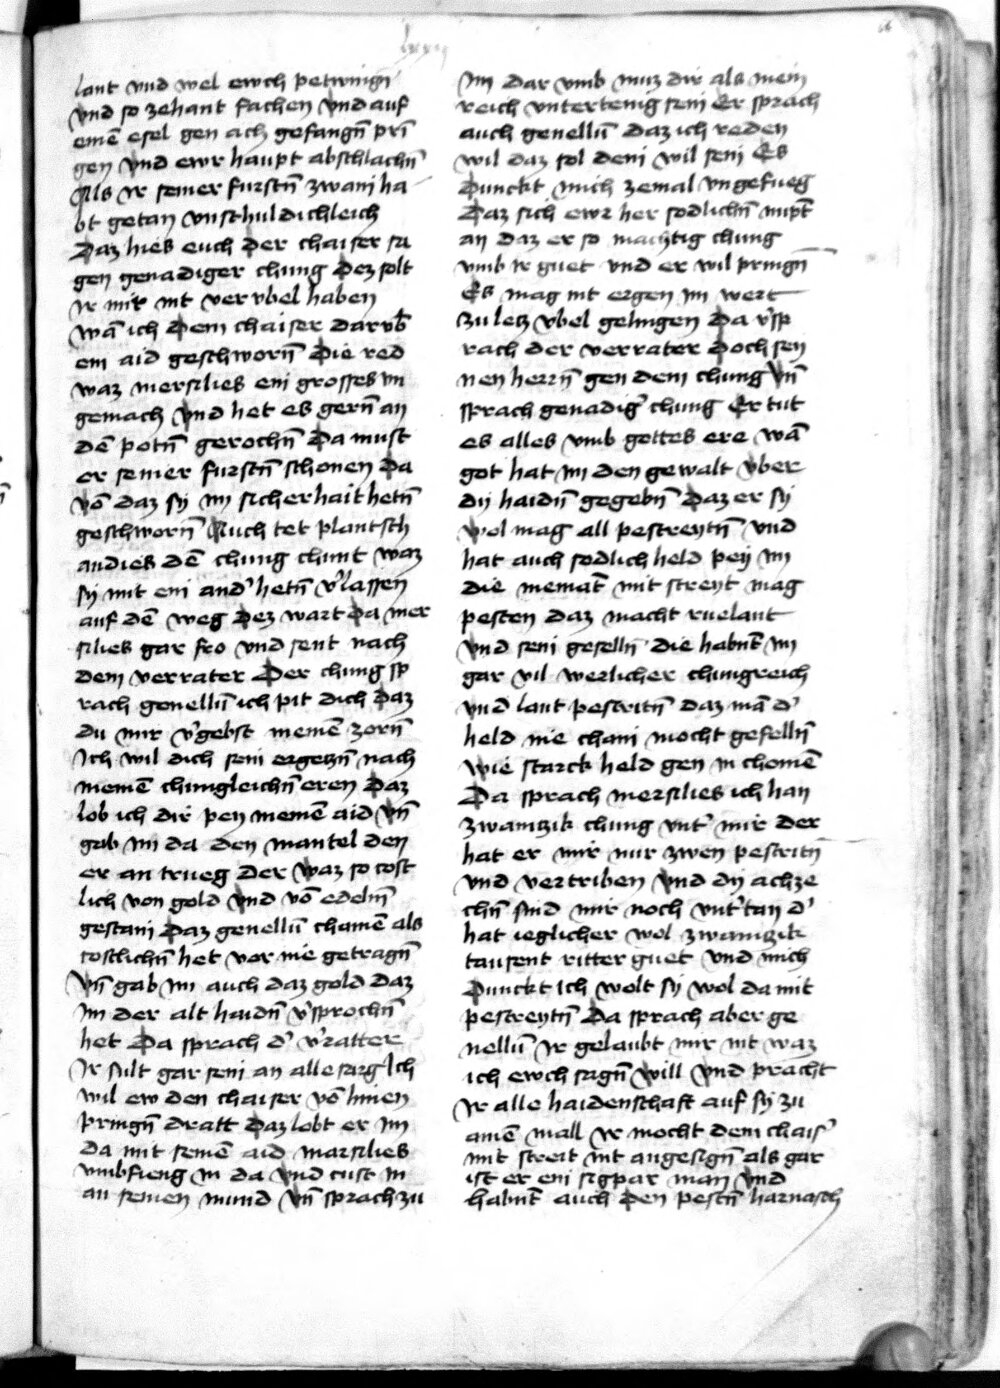 lant vnd wel ewch petwnign
vnd so zehant fachen vnd auf
einē esel gen ach gefangn̄ prī
gen vnd ewr haupt abschlachn̄
Als ir seiner furstn̄ zwain ha
bt getan vnschuldichleich
Daz hies euch der chaiser sa
gen genadiger chung dez solt
ir mir nit ver vbel haben
wā ich dem chaiser darvb̄
ein aid geschworn̄ Die red
waz mersilies ein grosses vn
gemach vnd het es gern̄ an
dē potn̄ gerochn̄ Da must
er seiner furstn̄ schonen Da
vō daz sy im sicherhait hetn̄
geschworn̄ Auch tet plantsch
andies dē chung chunt waz
sy mit ein and' hetn̄ v'lassen
auf dē weg dez wart da mer
silies gar fro vnd sent nach
dem verrater Der chung sp
rach genellū ich pit dich daz
du mir v'gebst meinē zorn̄
Ich wil dich sein ergetzn̄ nach
meinē chungleichn̄ eren Daz
lob ich dir pey meinē aid vn̄
gab im da den mantel den
er an trueg der waz so cost
lich von gold vnd vō edeln̄
gestain daz genellū chainē als
costlichn̄ het vor nie getragn̄
vn̄ gab im auch daz gold daz
im der alt haidn̄ v'sprochn̄
het Da sprach d' v'ratter
Ir sult gar sein an alle sarg Ich
wil ew den chaiser vō hinen
pringn̄ dratt Daz lobt er im
da mit seinē aid marsilies
vmbfieng in da vnd cust in
an seinen mund vn̄ sprach zu
im dar vmb muz dir als mein
reich vntertenig sein Er sprach
auch genellū daz ich reden
wil daz sol dein wil sein Es
Dunckt mich zemal vngefueg
Daz sich ewr her sodlichn̄ nipt̄
an daz er so machtig chung
vmb ir guet vnd er wil pringn̄
Es mag nit ergen im wert
zu letz vbel gelingen Da v'sp
rach der verrater Doch sey
nen herrn̄ gen dem chung vn̄
sprach genadig' chung Er tut
es alles vmb gottes ere wā
got hat im den gewalt vber
dy haidn̄ gegebn̄ Daz er sy
wol mag all pestreytn̄ vnd
hat auch sodlich held pey im
die niemat̄ mit streyt mag
pesten daz macht ruelant
vnd sein geselln̄ die habnt̄ im
gar vil werlicher chungreich
vnd lant pestritn̄ daz mā d'
held nie chain mocht gefelln̄
wie starck held gen in chomē
Da sprach mersilies ich han
zwaintzik chung vnt' mir der
hat er mir nur zwen pestritn̄
vnd vertriben vnd dy achze
chn̄ sind mir noch vnt'tan d'
hat ieglicher wol zwaintzik
tausent ritter guet vnd mich
Dunckt ich wolt sy wol da mit
pestreytn̄ Da sprach aber ge
nellū Ir gelaubt mir nit waz
ich ewch sagn̄ will vnd pracht
Ir alle haidenschaft auf sy zu
ainē mall Ir mocht dem chais'
mit streit nit angesign̄ als gar
ist er ein sigpar man vnd
habnt̄ auch den pestn̄ harnasch